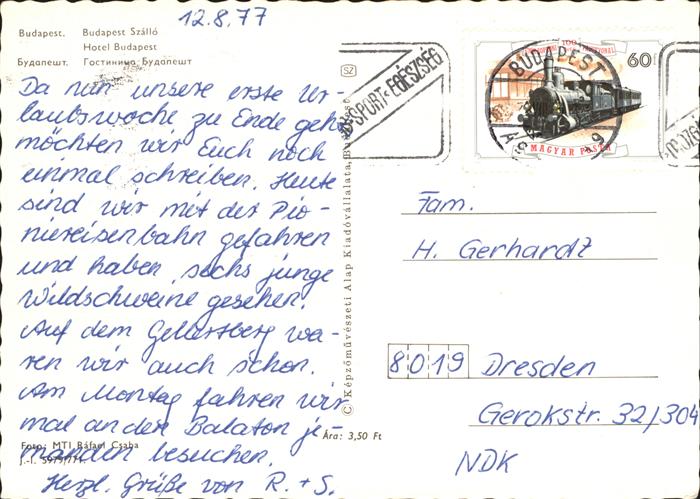 12.8.77
Budapest. Budapest Szálló
Hotel Budapest
Будапешт. Гостиница Будапешт
Da nun unsere erste Ur-
laubswoche zu Ende geht
möchten wir Euch noch
einmal schreiben. Heute
sind wir mit der Pio-
niereisenbahn gefahren
und haben sechs junge
Wildschweine gesehen.
Auf dem Gellertsberg wa-
ren wir auch schon.
Am Montag fahren wir
mal an den Balaton je-
manden besuchen.
Herzl. Grüße von R. + S.
Foto: MTI Ráfael Csaba
Ára: 3,50 Ft
SZ
C Képzőművészeti Alap Kiadóvállalata, Budapest
SPORT EGÉSZSÉG
BUDAPEST
100
60 f
MAGYAR POSTA
Fam.
H. Gerhardt
8019 Dresden
Gerokstr. 32/304
NDK